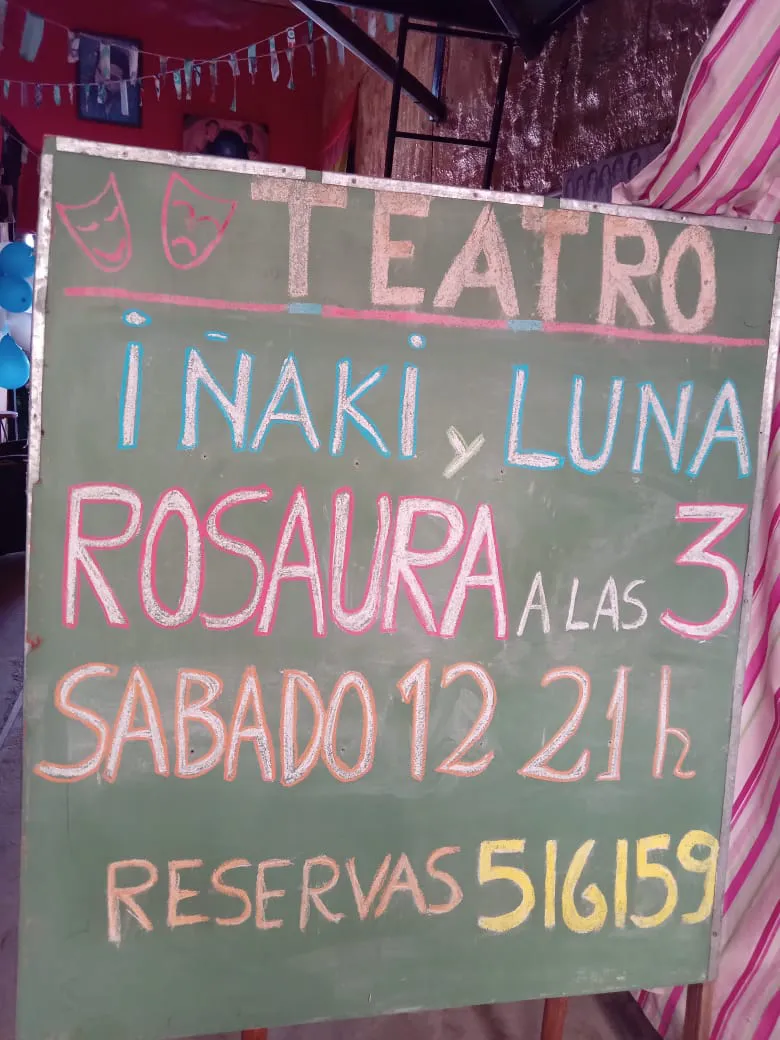 TEATRO
iÑAKi y LUNA
ROSAURA A LAS 3
SABADO 12 21h
RESERVAS 516159